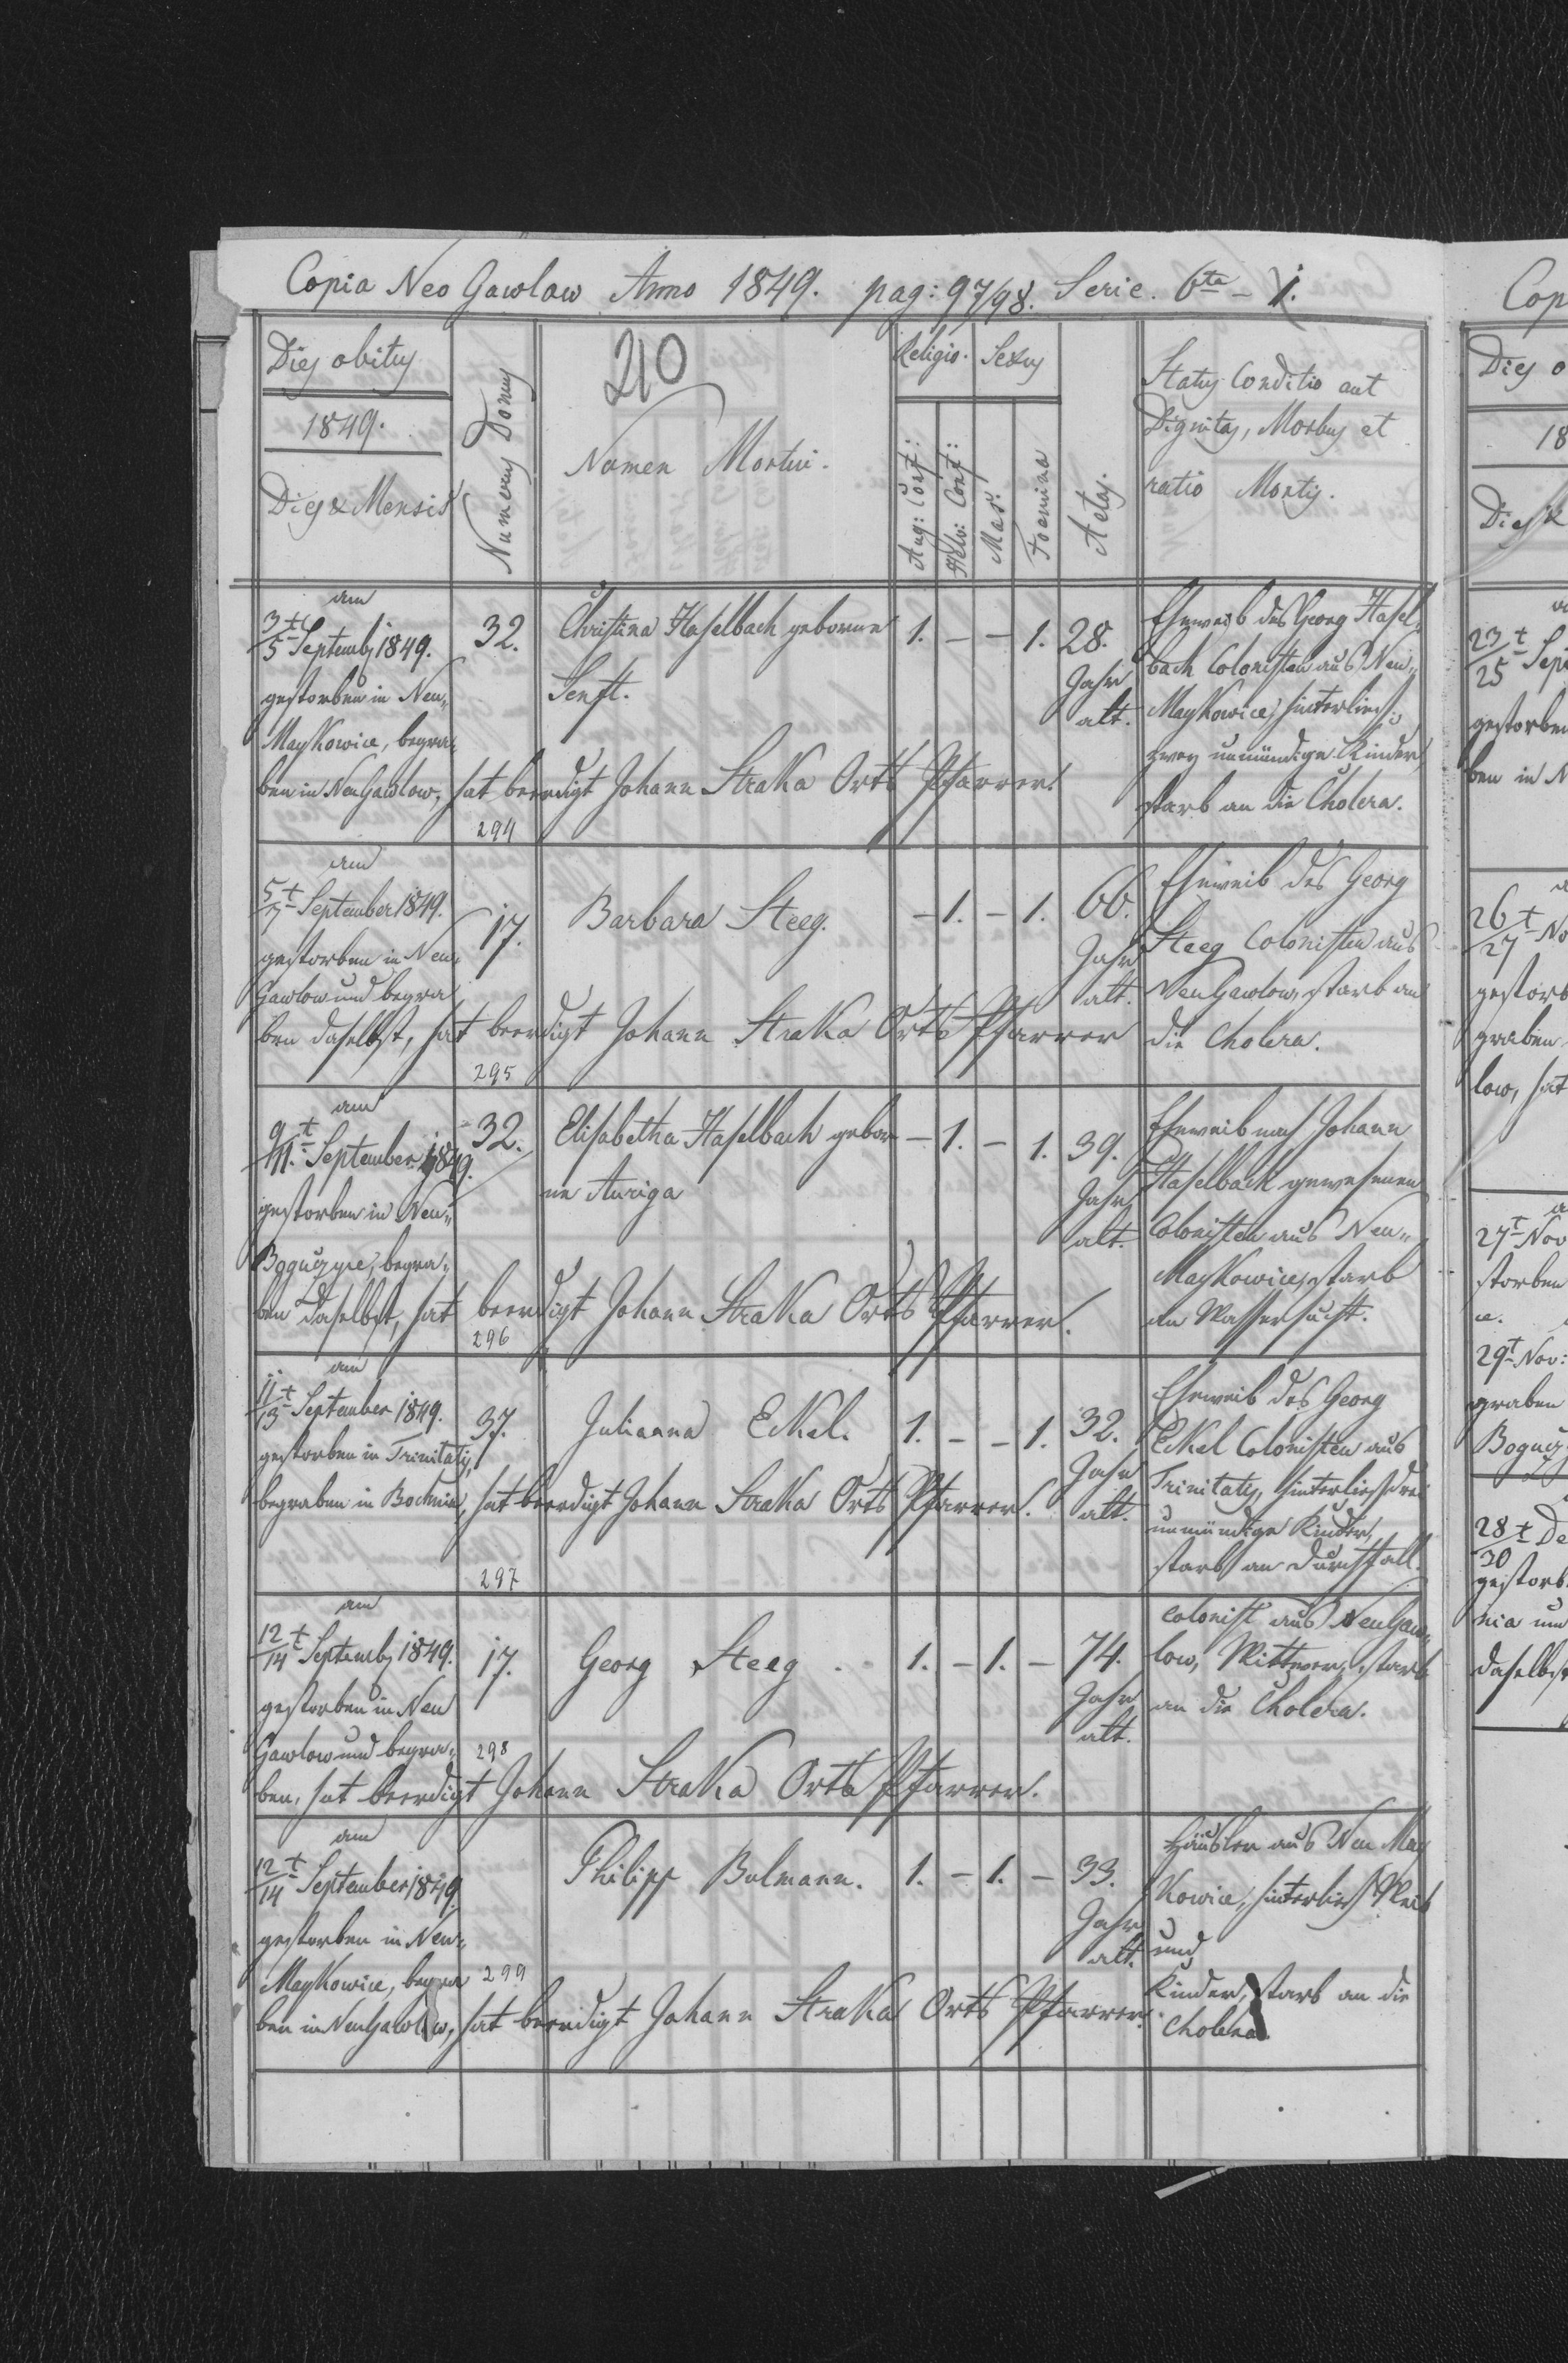 Copia Neo Gawlow Anno 1849. pag: 97/98. Serie. 6ta - 1.
Dies obitus
1849.
Dies & Mensis
Numerus Domus
210
Nomen Mortui.
Religio.
Aug: Conf:
Helv: Conf:
Sexus
Mas:
Foemina
Aetas.
Status Conditio aut
Dignitas, Morbus et
ratio Mortis.
am
3/5t Septemb 1849.
gestorben in Neu„
MayKowice, begra„
ben in NeuGawlow, hat beerdigt Johann StraKa Orts Pfarrer.
32.
294
Christina Haselbach geborene
Senft.
1. – – 1.
28.
Jahr
alt.
Eheweib des Georg Hasel„
bach Colonisten aus Neu„
MayKowice, hinterließ
zwey unmündige Kinder,
starb an die Cholera.
am
5/7t September 1849.
gestorben in Neu
Gawlow und begra
ben daselbst, hat beerdigt Johann StraKa Orts Pfarrer
17.
295
Barbara Steeg.
– 1. – 1.
66.
Jahr
alt.
Eheweib des Georg
Steeg Colonisten aus
NeuGawlow, starb an
die Cholera.
am
9/11.t September 1849.
gestorben in Neu„
Boguczyce, begra„
ben daselbst, hat beerdigt Johann StraKa Orts Pfarrer.
32.
296
Elisabetha Haselbach gebor
ne Auriga
– 1. – 1.
39.
Jahr
alt.
Eheweib nach Johann
Haselbach gewesenen
Colonisten aus Neu„
MayKowice, starb
an Wassersucht.
am
11/13t September 1849.
gestorben in Trinitatis,
begraben in Bochnia, hat beerdigt Johann StraKa Orts Pfarrer.
37.
297
Julianna EcKel.
1. – – 1.
32.
Jahr
alt.
Eheweib des Georg
EcKel Colonisten aus
Trinitatis, hinterließ drei
unmündige Kinder,
starb an Durchfall.
am
12/14t Septemb 1849.
gestorben in Neu
Gawlow und begra„
ben, hat beerdigt Johann StraKa Orts Pfarrer.
17.
298
Georg Steeg
1. – 1. –
74.
Jahr
alt.
Colonist aus NeuGaw„
low, Wittwer, starb
an die Cholera.
am
12/14t September 1849
gestorben in Neu„
MayKowice, begra
ben in NeuGawlow, hat beerdigt Johann StraKa Orts Pfarrer.
299
Philipp Bulmann.
1. – 1. –
33.
Jahr
alt.
Häusler aus Neu May
Kowice, hinterließ Weib
und
Kinder, starb an die
Cholera.
Cop
Dies o
18
Dies &
23/25t Sep
gestorben
ben in N
26/27t No
gestorb
graben
low, hat
27t Nov
storben
29t Nov:
graben
Bogucz
28/30t De
gestorb
nia und
daselbst